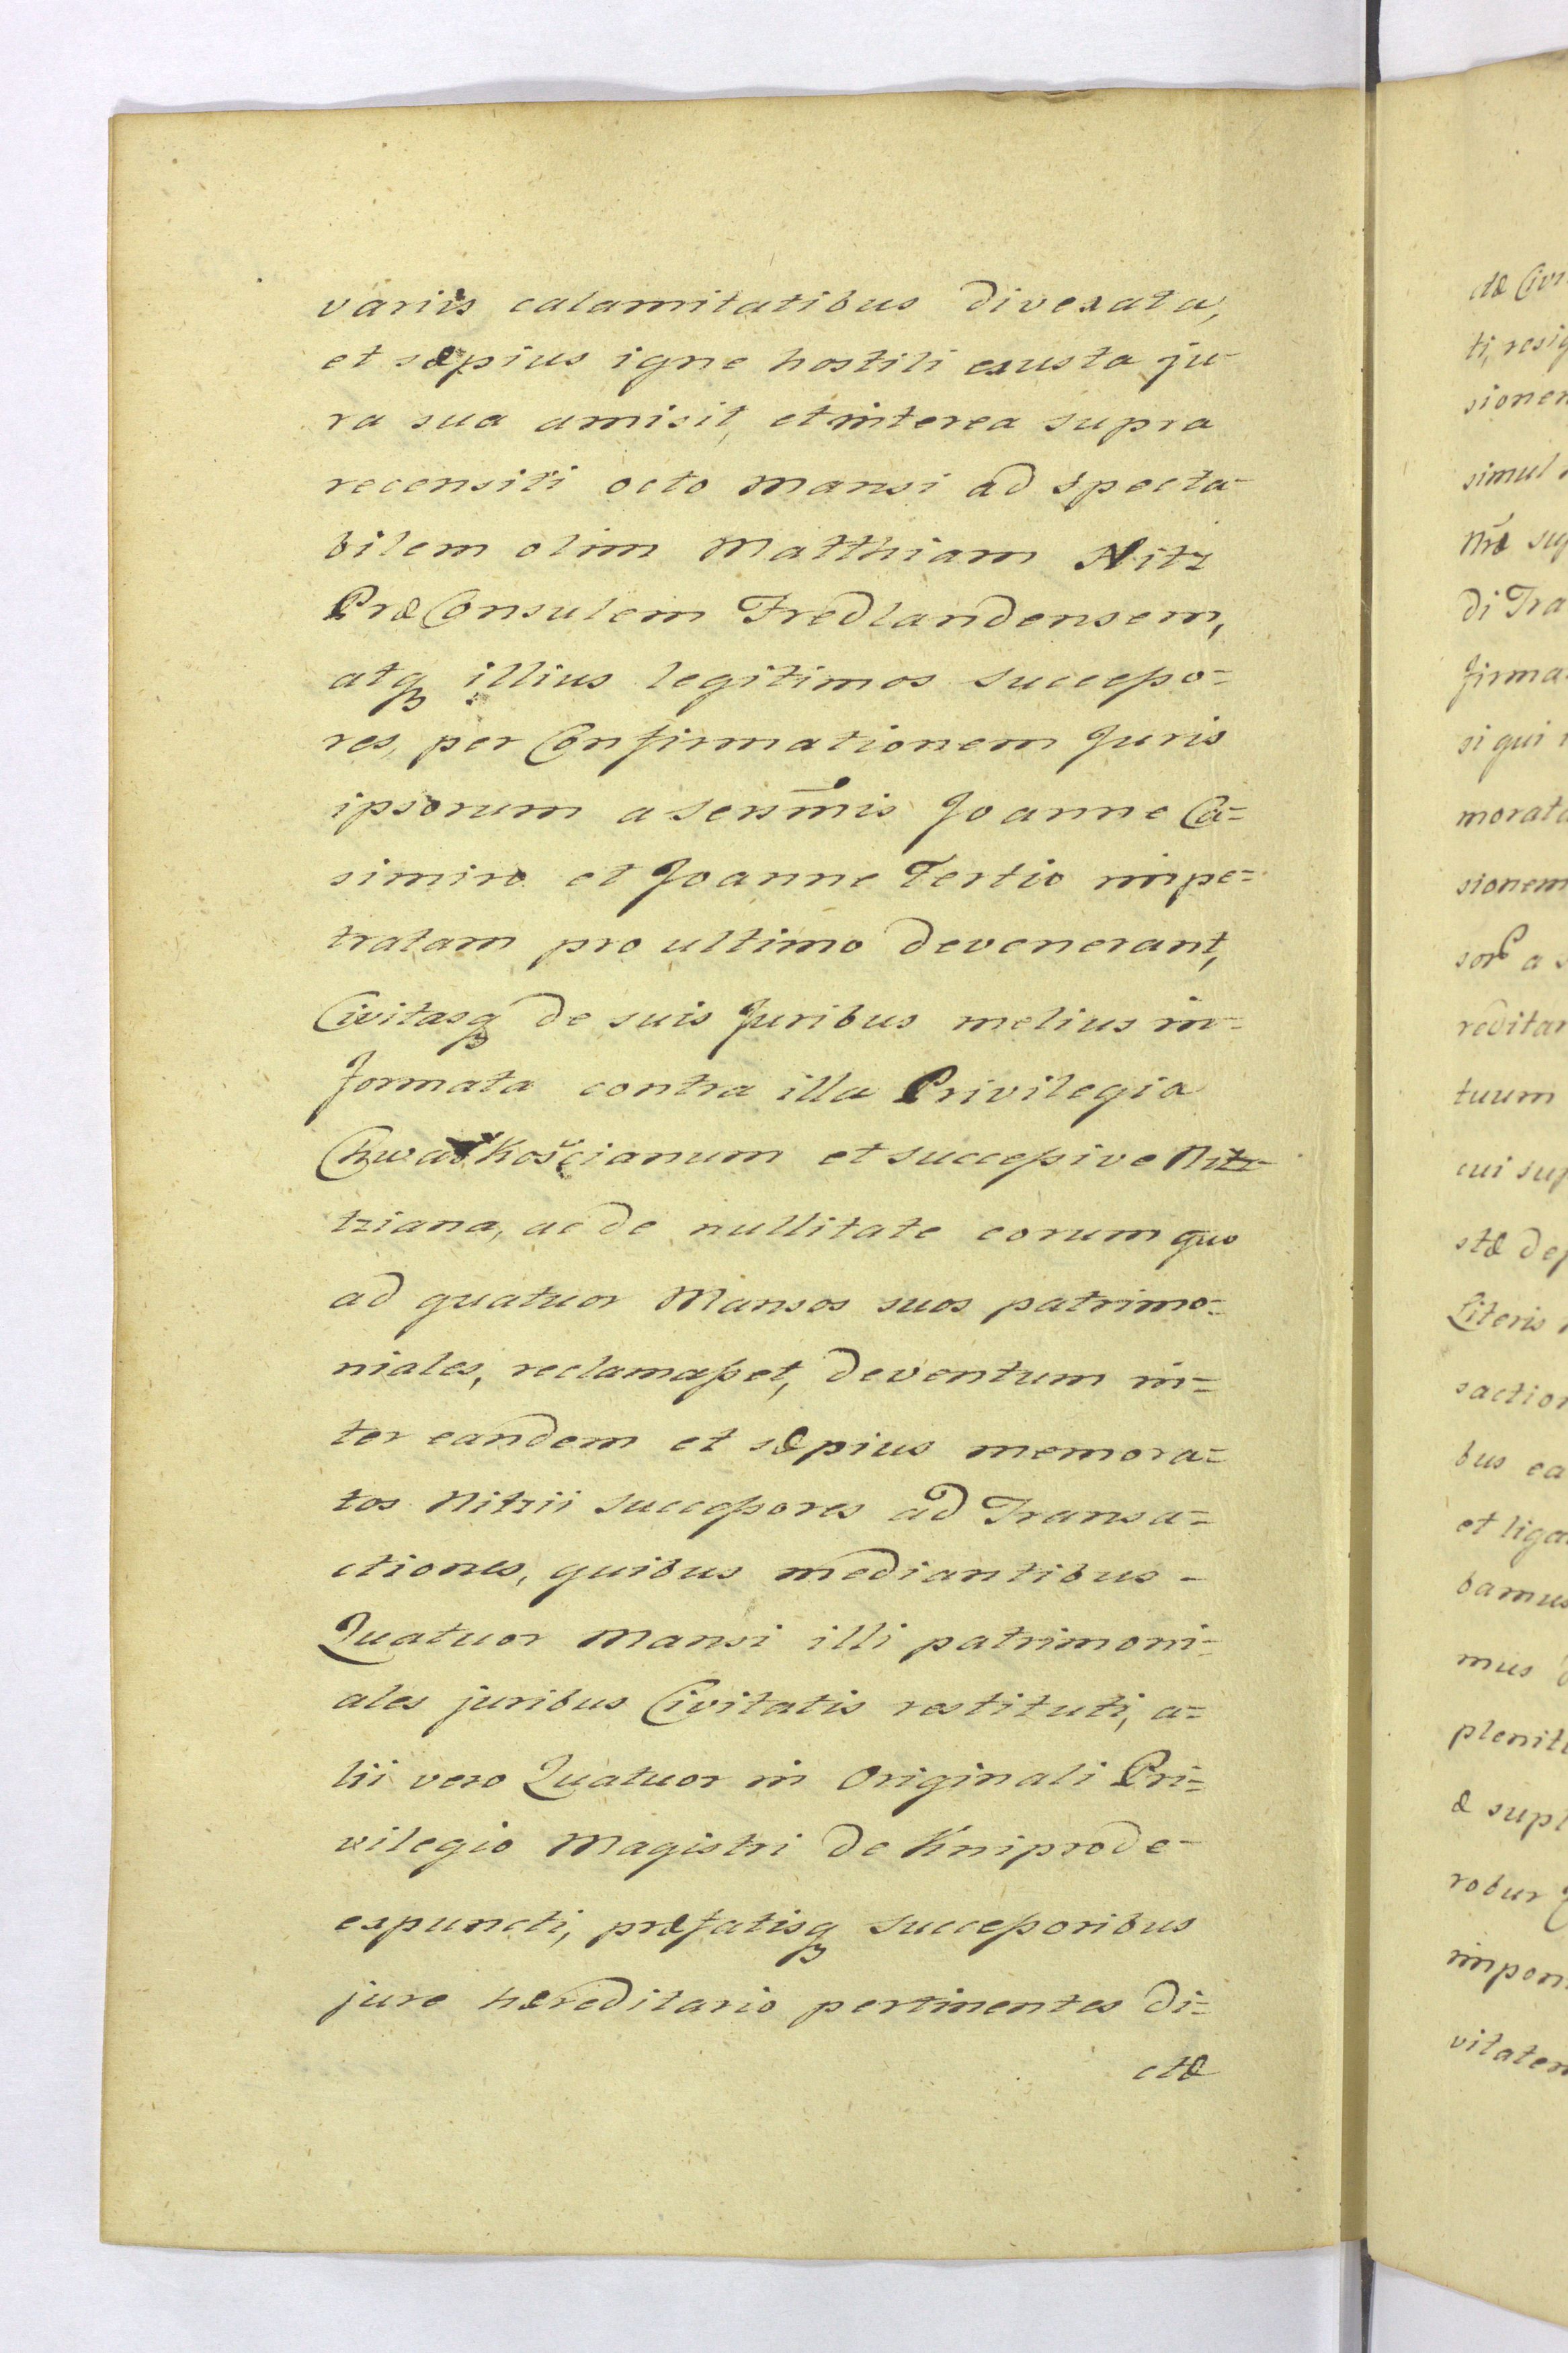 variis calamitatibus divexata,
et sæpius igne hostili exusta ju-
ra sua amisit, et interea supra
recensiti octo Mansi ad specta-
bilem olim Matthiam Nitz
PræConsulem Fredlandensem,
atqȝ illius legitimos successo=
res, per Confirmationem Juris
ipsorum a Sersm̃is Joanne Ca=
simiro et Joanne Tertio impe=
tratam pro ultimo devenerant,
Civitasqȝ de suis Juribus melius in=
formata contra illa Privilegia
Chwaskościanum et successive Nitz-
tziana, ac de nullitate eorum quo
ad quatuor Mansos suos patrimo=
niales, reclamasset, deventum in=
ter eandem et sæpius memora=
tos Nitzii Successores ad Transa=
ctiones, quibus mediantibus -
Quatuor Mansi illi patrimoni=
ales juribus Civitatis restituti, a=
lii vero Quatuor in Originali Pri=
vilegio Magistri de Kniprode-
expuncti, præfatisqȝ Successoribus
jure hæreditario pertinentes di=
ctæ
dæ Civi
ti, resig
sionem
simul
Nr̃æ su
di Tra
firma
si qui
morata
sionem
a s
reditar
tuum
cui sup
stæ dep
Literis
saction
bus ea
et liga
bamus
mus
plenit
æ supl
robur
impon
vitatem